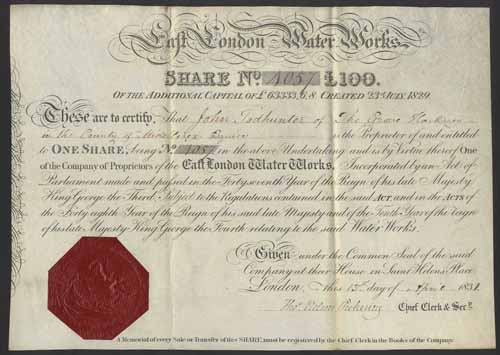 East London Water Works.
SHARE No. 1057 £100.
OF THE ADDITIONAL CAPITAL OF £63333.6.8. CREATED 23d JULY, 1829.
These are to certify, That John Todhunter of The Grove Hackney
in the County of Middlesex Esquire is the Proprietor of and entitled
to ONE SHARE, being No. 1057 in the above Undertaking and is by Virtue thereof One
of the Company of Proprietors of the East London Water Works, Incorporated by an Act of
Parliament made and passed in the Forty seventh Year of the Reign of his late Majesty
King George the Third, Subject to the Regulations contained in the said ACT, and in the ACTS of
the Forty eighth Year of the Reign of his said late Majesty and of the Tenth Year of the reign
of his late Majesty King George the Fourth relating to the said Water Works.
Given under the Common Seal of the said
Company at their House in Saint Helens Place
London, this 13th day of April 1831.
Thos. Pickering Chief Clerk & Secy.
A Memorial of every Sale or Transfer of this SHARE, must be registered by the Chief Clerk in the Books of the Company